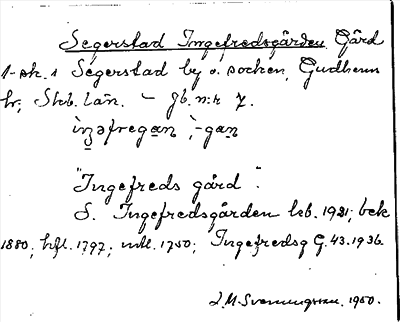 Segerstad Ingefredsgården Gård
1 sk. i Segerstad by o. socken, Gudhems
hr, Skb. län. - Jb. n:r 7.
"Ingefreds gård".
S. Ingefredsgården lrb. 1921; bek
1880; hfl. 1797; mtl. 1750; Ingefredsg G. 43. 1936.
J. M. Svenningsson. 1950.